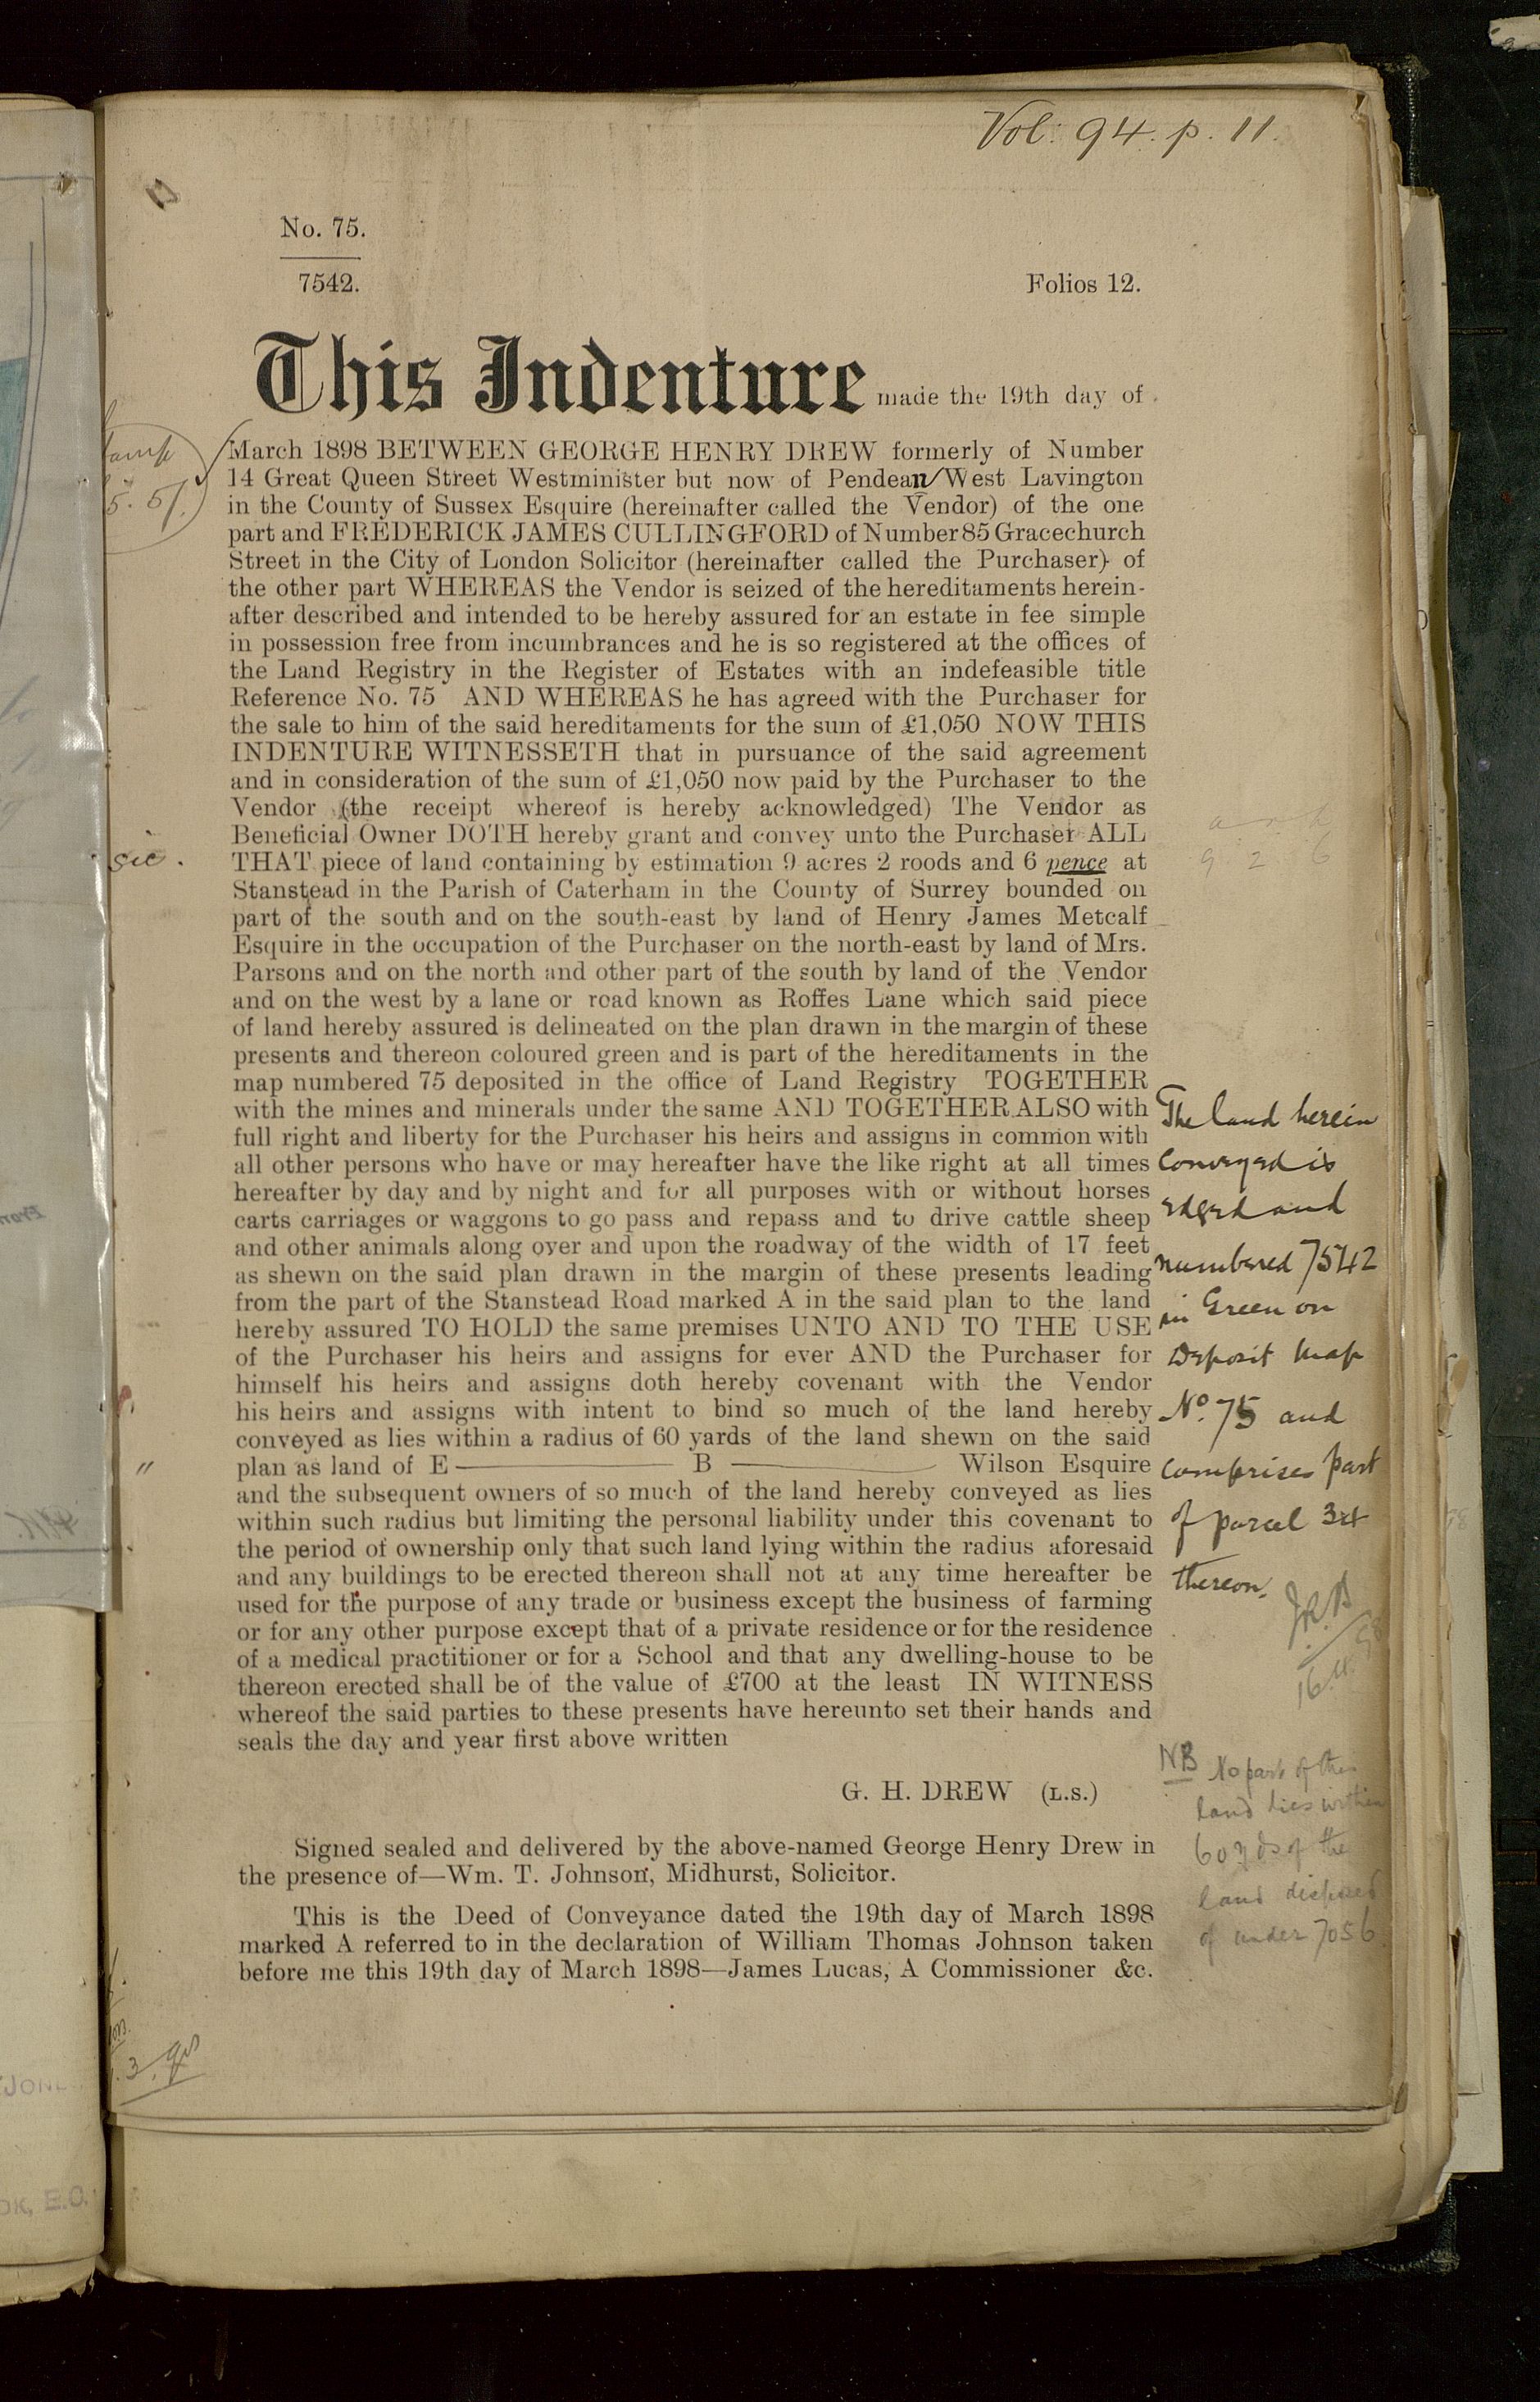 Vol. 94. p. 11.
No. 75.
7542.
Folios 12.
This Indenture made the 19th day of
March 1898 BETWEEN GEORGE HENRY DREW formerly of Number
14 Great Queen Street Westminister but now of Pendean West Lavington
in the County of Sussex Esquire (hereinafter called the Vendor) of the one
part and FREDERICK JAMES CULLINGFORD of Number 85 Gracechurch
Street in the City of London Solicitor (hereinafter called the Purchaser) of
the other part WHEREAS the Vendor is seized of the hereditaments herein-
after described and intended to be hereby assured for an estate in fee simple
in possession free from incumbrances and he is so registered at the offices of
the Land Registry in the Register of Estates with an indefeasible title
Reference No. 75 AND WHEREAS he has agreed with the Purchaser for
the sale to him of the said hereditaments for the sum of £1,050 NOW THIS
INDENTURE WITNESSETH that in pursuance of the said agreement
and in consideration of the sum of £1,050 now paid by the Purchaser to the
Vendor (the receipt whereof is hereby acknowledged) The Vendor as
Beneficial Owner DOTH hereby grant and convey unto the Purchaser ALL
sic.
THAT piece of land containing by estimation 9 acres 2 roods and 6 pence at
9 2 6
Stanstead in the Parish of Caterham in the County of Surrey bounded on
part of the south and on the south-east by land of Henry James Metcalf
Esquire in the occupation of the Purchaser on the north-east by land of Mrs.
Parsons and on the north and other part of the south by land of the Vendor
and on the west by a lane or road known as Roffes Lane which said piece
of land hereby assured is delineated on the plan drawn in the margin of these
presents and thereon coloured green and is part of the hereditaments in the
map numbered 75 deposited in the office of Land Registry TOGETHER
with the mines and minerals under the same AND TOGETHER ALSO with
full right and liberty for the Purchaser his heirs and assigns in common with
all other persons who have or may hereafter have the like right at all times
hereafter by day and by night and for all purposes with or without horses
carts carriages or waggons to go pass and repass and to drive cattle sheep
and other animals along over and upon the roadway of the width of 17 feet
as shewn on the said plan drawn in the margin of these presents leading
from the part of the Stanstead Road marked A in the said plan to the land
hereby assured TO HOLD the same premises UNTO AND TO THE USE
of the Purchaser his heirs and assigns for ever AND the Purchaser for
himself his heirs and assigns doth hereby covenant with the Vendor
his heirs and assigns with intent to bind so much of the land hereby
conveyed as lies within a radius of 60 yards of the land shewn on the said
" plan as land of E ——— B ——— Wilson Esquire
and the subsequent owners of so much of the land hereby conveyed as lies
within such radius but limiting the personal liability under this covenant to
the period of ownership only that such land lying within the radius aforesaid
and any buildings to be erected thereon shall not at any time hereafter be
used for the purpose of any trade or business except the business of farming
or for any other purpose except that of a private residence or for the residence
of a medical practitioner or for a School and that any dwelling-house to be
thereon erected shall be of the value of £700 at the least IN WITNESS
whereof the said parties to these presents have hereunto set their hands and
seals the day and year first above written
G. H. DREW (L.S.)
Signed sealed and delivered by the above-named George Henry Drew in
the presence of—Wm. T. Johnson, Midhurst, Solicitor.
This is the Deed of Conveyance dated the 19th day of March 1898
marked A referred to in the declaration of William Thomas Johnson taken
before me this 19th day of March 1898—James Lucas, A Commissioner &c.
The land herein
conveyed is
edged and
numbered 7542
in Green on
Deposit Map
No. 75 and
comprises part
of parcel 3rd
thereon.
NB No part of this
land lies within
60 yds of the
land disposed
of under 7056